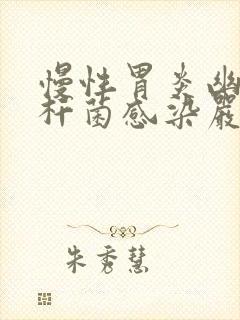 慢性胃炎幽
杆菌感染嚴
朱秀慧